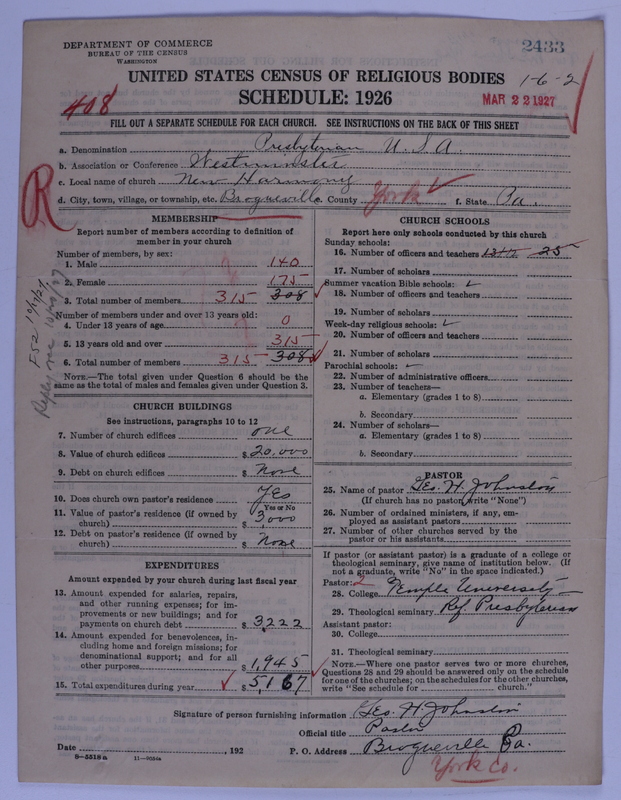 DEPARTMENT OF COMMERCE
BUREAU OF THE CENSUS
WASHINGTON
2433
UNITED STATES CENSUS OF RELIGIOUS BODIES
1-6-2
SCHEDULE: 1926
MAR 22 1927
408
FILL OUT A SEPARATE SCHEDULE FOR EACH CHURCH. SEE INSTRUCTIONS ON THE BACK OF THIS SHEET
a. Denomination Presbyterian U.S.A.
b. Association or Conference Westminster
c. Local name of church New Harmony
d. City, town, village, or township, etc. Brogueville County York f. State Pa.
R
MEMBERSHIP
Report number of members according to definition of member in your church
Number of members, by sex:
1. Male 140
2. Female 175
3. Total number of members 315 308
Number of members under and over 13 years old:
4. Under 13 years of age 0
5. 13 years old and over 315
6. Total number of members 315 308
NOTE.—The total given under Question 6 should be the
same as the total of males and females given under Question 3.
CHURCH BUILDINGS
See instructions, paragraphs 10 to 12
7. Number of church edifices one
8. Value of church edifices $20,000
9. Debt on church edifices $ None
10. Does church own pastor's residence Yes
Yes or No
11. Value of pastor's residence (if owned by
church) $ 3,000
12. Debt on pastor's residence (if owned by
church) $ None
EXPENDITURES
Amount expended by your church during last fiscal year
13. Amount expended for salaries, repairs,
and other running expenses; for im-
provements or new buildings; and for
payments on church debt $ 3222
14. Amount expended for benevolences, in-
cluding home and foreign missions; for
denominational support; and for all
other purposes 1,945
15. Total expenditures during year $ 5,167
CHURCH SCHOOLS
Report here only schools conducted by this church
Sunday schools:
16. Number of officers and teachers 25
17. Number of scholars
Summer vacation Bible schools:
18. Number of officers and teachers
19. Number of scholars
Week-day religious schools:
20. Number of officers and teachers
21. Number of scholars
Parochial schools:
22. Number of administrative officers
23. Number of teachers—
a. Elementary (grades 1 to 8)
b. Secondary
24. Number of scholars—
a. Elementary (grades 1 to 8)
b. Secondary
PASTOR
25. Name of pastor Geo. H. Johnston
(If church has no pastor, write "None")
26. Number of ordained ministers, if any, em-
ployed as assistant pastors
27. Number of other churches served by the
pastor or his assistants
If pastor (or assistant pastor) is a graduate of a college or
theological seminary, give name of institution below. (If
not a graduate, write "No" in the space indicated.)
Pastor: 2
28. College Temple University
29. Theological seminary Ref. Presbyterian
Assistant pastor:
30. College
31. Theological seminary
NOTE.—Where one pastor serves two or more churches,
Questions 28 and 29 should be answered only on the schedule
for one of the churches; on the schedules for the other churches,
write "See schedule for church."
Signature of person furnishing information Geo. H. Johnston
Official title Pastor
Date , 192 P. O. Address Brogueville Pa.
8—5518a 11—9554a
York Co.